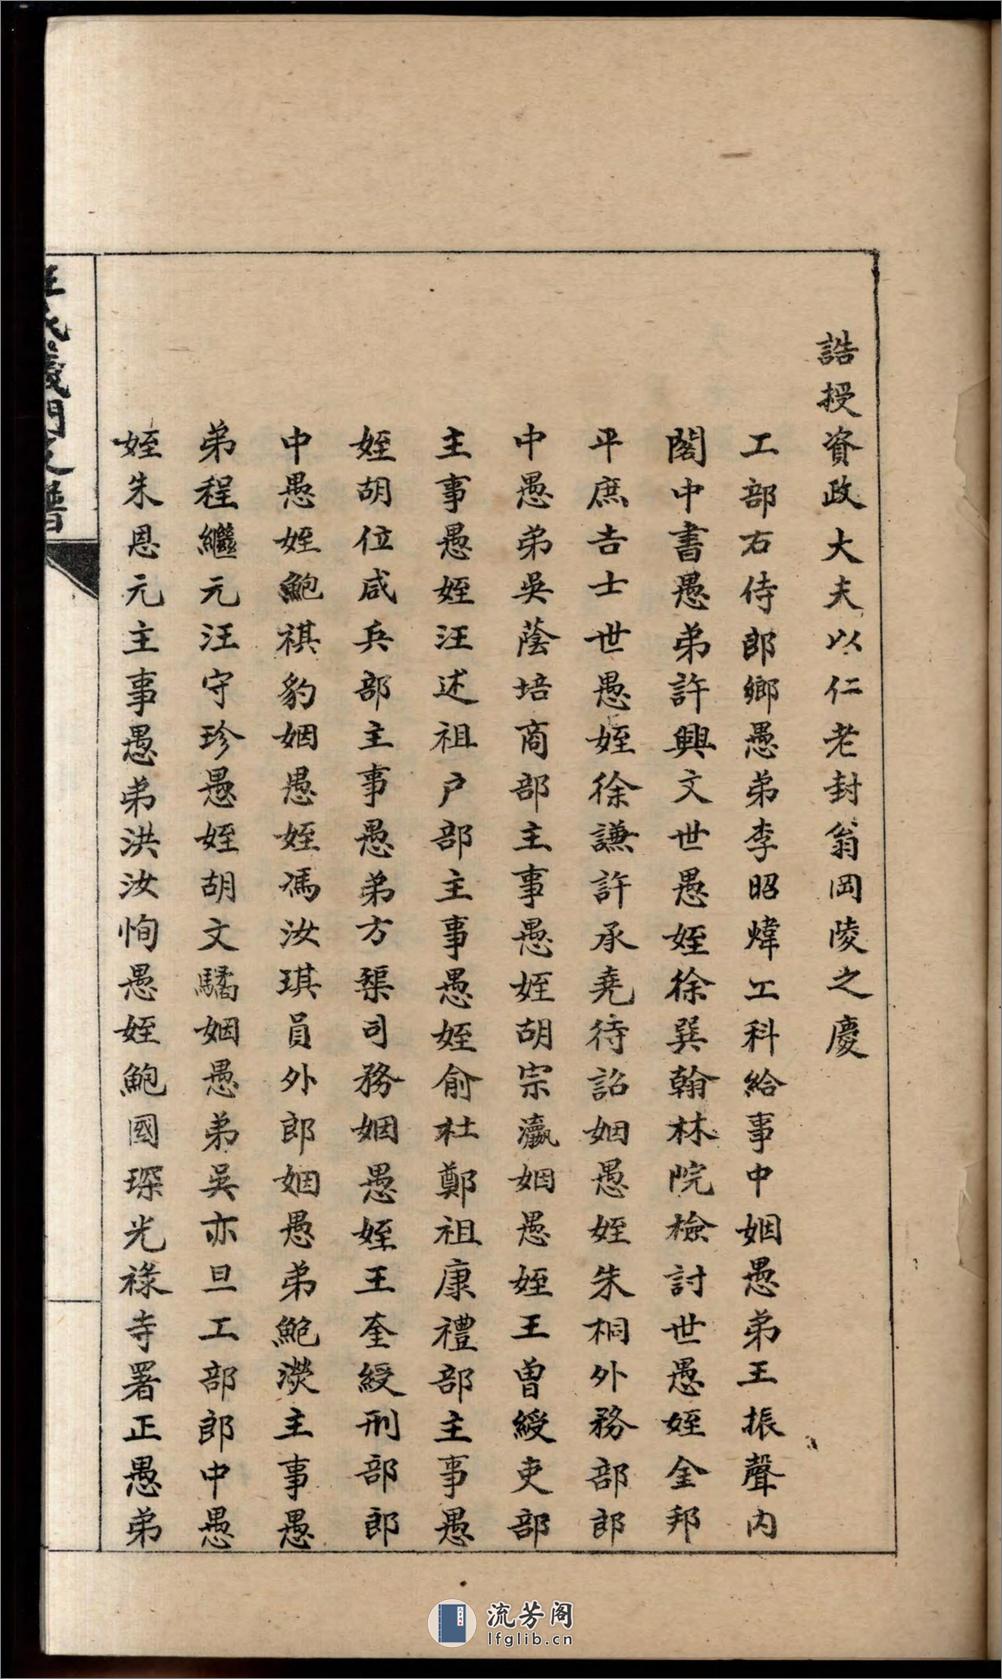 誥授資政大夫以仁老封翁岡陵之慶
工部右侍郎鄉愚弟李昭煒工科給事中姻愚弟王振聲內
閣中書愚弟許興文世愚姪徐巽翰林院檢討世愚姪金邦
平庶吉士世愚姪徐謙許承堯待詔姻愚姪朱桐外務部郎
中愚弟吳蔭培商部主事愚姪胡宗瀛姻愚姪王曾綬吏部
主事愚姪汪述祖戶部主事愚姪俞杜鄭祖康禮部主事愚
姪胡位咸兵部主事愚弟方榘司務姻愚姪王奎綬刑部郎
中愚姪鮑祺豹姻愚姪馮汝琪員外郎姻愚弟鮑濙主事愚
弟程繼元汪守珍愚姪胡文驕姻愚弟吳亦旦工部郎中愚
姪朱恩元主事愚弟洪汝恂愚姪鮑國琛光祿寺署正愚弟
氏義門支譜
流芳阁
lfglib.cn